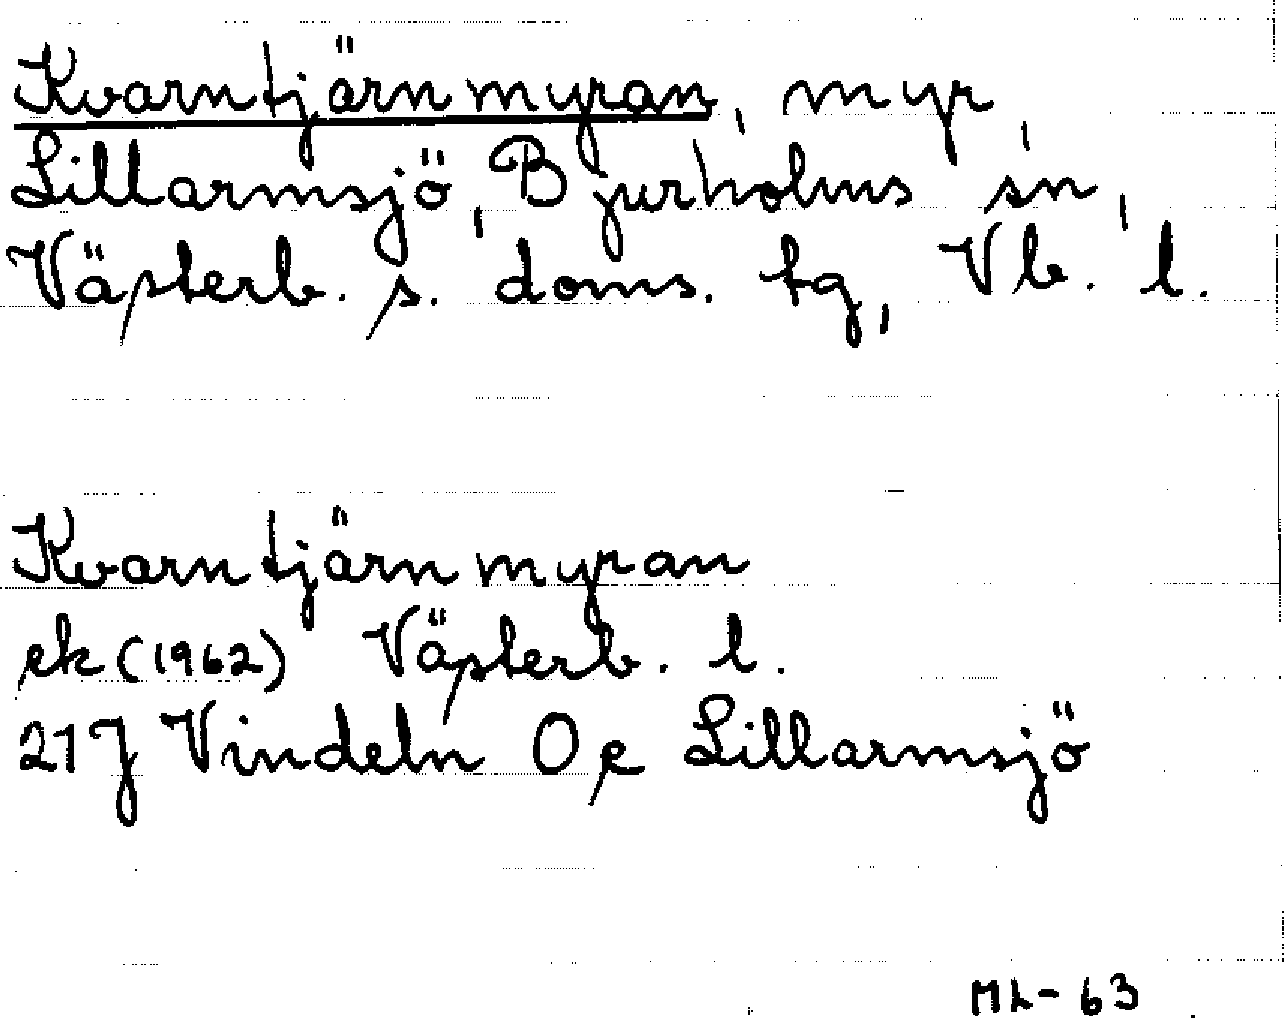 Kvarntjärnmyran, myr,
Lillarmsjö, Bjurholms sn,
Västerb. s. doms. tg, Vb. l.
Kvarntjärnmyran
ek (1962) Västerb. l.
21J Vindeln Oe Lillarmsjö
ML-63